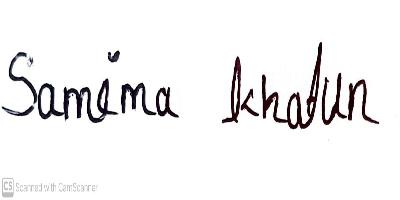 Samima khatun
CS Scanned with CamScanner